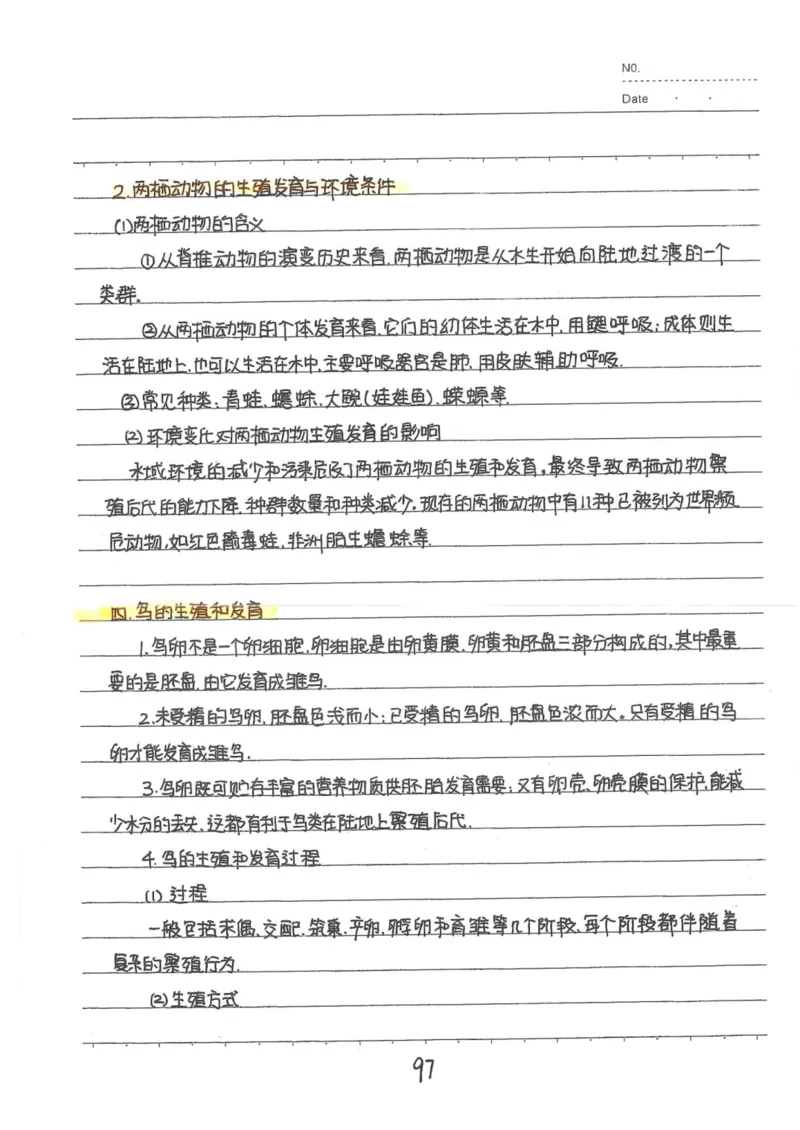 NO.
Date
2.两栖动物的生殖发育与环境条件
(1)两栖动物的含义
①从脊椎动物的演变历史来看,两栖动物是从水生开始向陆地过渡的一个
类群.
②从两栖动物的个体发育来看,它们的幼体生活在水中,用鳃呼吸;成体则生
活在陆地上,也可以生活在水中,主要呼吸器官是肺,用皮肤辅助呼吸.
③常见种类:青蛙、蟾蜍、大鲵(娃娃鱼)、蝾螈等.
(2)环境变化对两栖动物生殖发育的影响
水域环境的减少和污染危及了两栖动物的生殖和发育,最终导致两栖动物繁
殖后代的能力下降,种群数量和种类减少。现在的两栖动物中有11种已被列为世界频
危动物,如红色箭毒蛙,非洲胎生蟾蜍等.
四.鸟的生殖和发育
1.鸟卵不是一个卵细胞,卵细胞是由卵黄膜、卵黄和胚盘三部分构成的,其中最重
要的是胚盘,由它发育成雏鸟.
2.未受精的鸟卵,胚盘色浅而小;已受精的鸟卵,胚盘色浓而大。只有受精的鸟
卵才能发育成雏鸟.
3.鸟卵既可贮存丰富的营养物质供胚胎发育需要;又有卵壳、卵壳膜的保护,能减
少水分的丢失,这都有利于鸟类在陆地上繁殖后代.
4.鸟的生殖和发育过程
(1)过程
一般包括求偶、交配、筑巢、产卵、孵卵和育雏等几个阶段,每个阶段都伴随着
复杂的繁殖行为.
(2)生殖方式
97